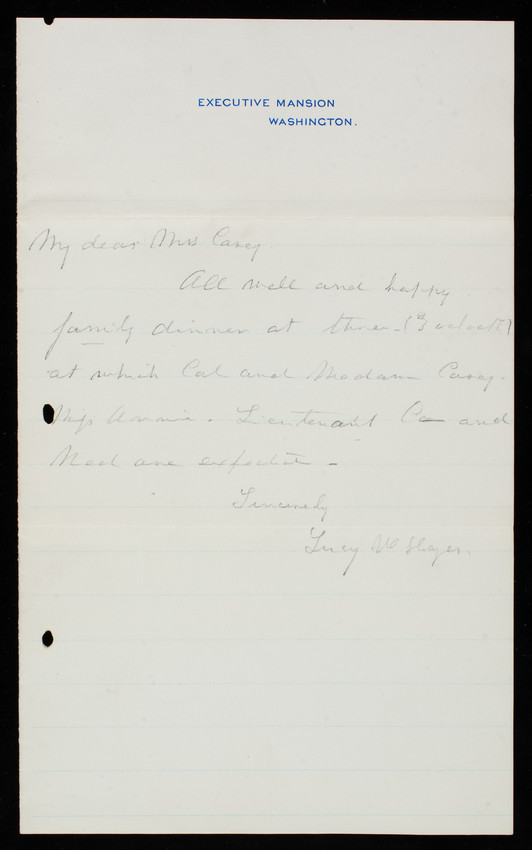 EXECUTIVE MANSION
WASHINGTON.
My dear Mrs Casey.
All well and happy
family dinner at three - (3 oclock)
at which Col and Madam Casey.
Miss Annie. Lieutenant C— and
Ned are expected -
Sincerely
Lucy W Hayes.